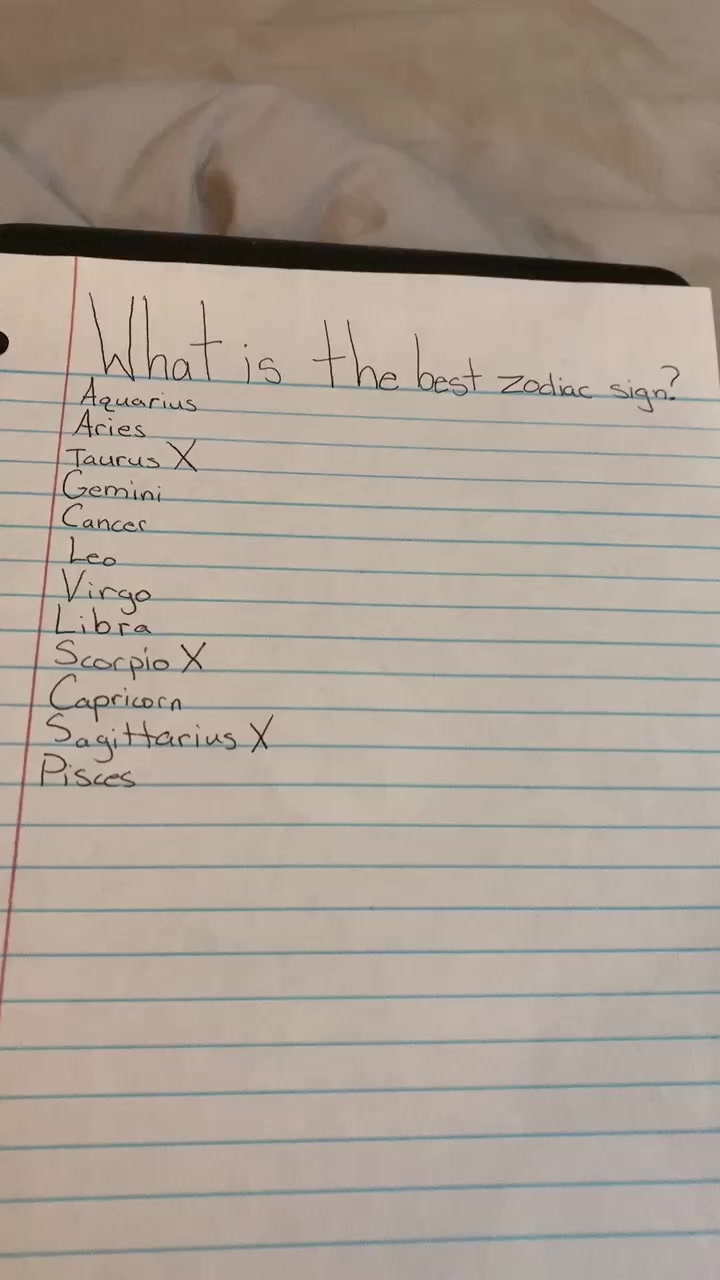 What is the best zodiac sign?
Aquarius
Aries
Taurus X
Gemini
Cancer
Leo
Virgo
Libra
Scorpio X
Capricorn
Sagittarius X
Pisces